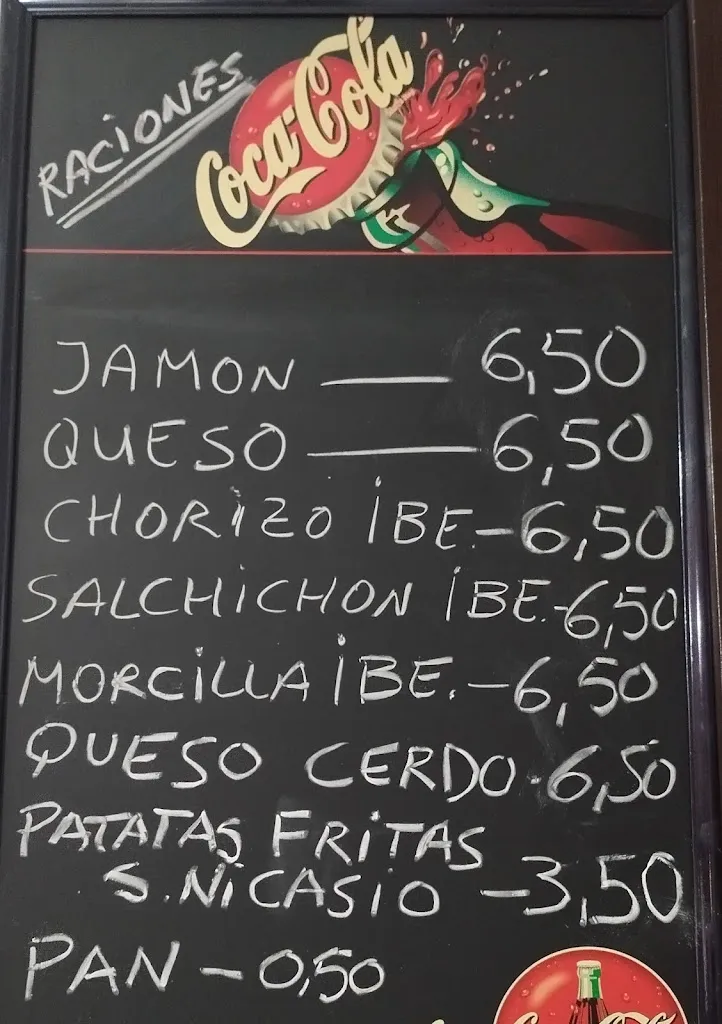 RACIONES
Coca-Cola
JAMON — 6,50
QUESO — 6,50
CHORIZO IBE.-6,50
SALCHICHON IBE.-6,50
MORCILLA IBE.-6,50
QUESO CERDO.6,50
PATATAS FRITAS
S.NICASIO -3,50
PAN - 0,50